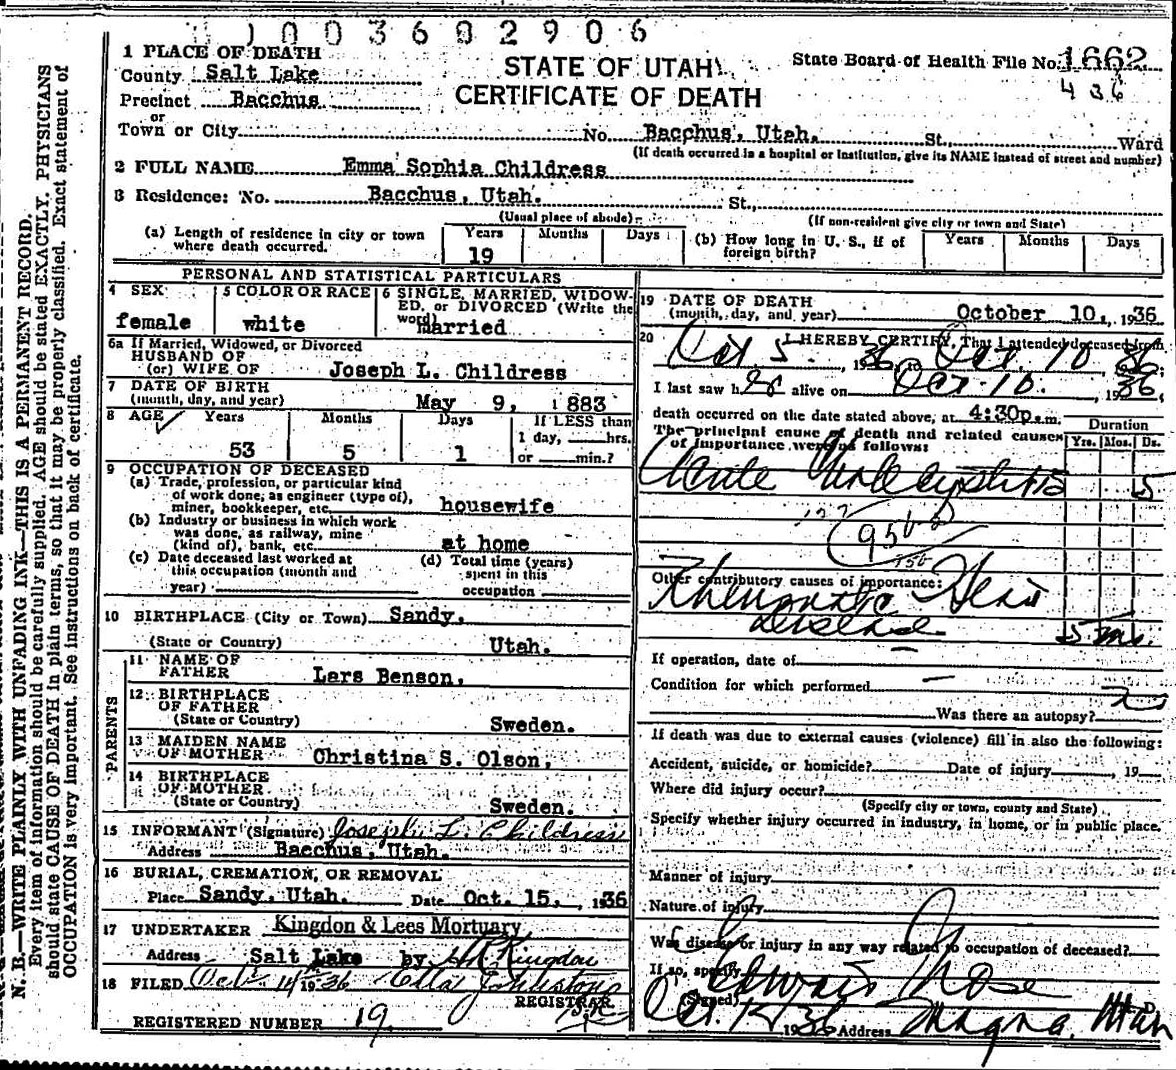 0 1 0 0 3 6 0 2 9 0 6
1 PLACE OF DEATH
County Salt Lake
Precinct Bacchus
or
Town or City No. Bacchus, Utah. St., Ward
(If death occurred in a hospital or institution, give its NAME instead of street and number)
STATE OF UTAH
CERTIFICATE OF DEATH
State Board of Health File No. 1662
436
2 FULL NAME Emma Sophia Childress
3 Residence: No. Bacchus, Utah. St.,
(Usual place of abode) (If non-resident give city or town and State)
(a) Length of residence in city or town where death occurred. Years Months Days
19
(b) How long in U. S., if of foreign birth? Years Months Days
PERSONAL AND STATISTICAL PARTICULARS
4 SEX
female
5 COLOR OR RACE
white
6 SINGLE, MARRIED, WIDOWED, or DIVORCED (Write the word)
married
6a If Married, Widowed, or Divorced
HUSBAND OF
(or) WIFE OF Joseph L. Childress
7 DATE OF BIRTH
(month, day, and year) May 9, 1883
8 AGE Years Months Days If LESS than
1 day, hrs.
53 5 1 or min.?
9 OCCUPATION OF DECEASED
(a) Trade, profession, or particular kind
of work done, as engineer (type of),
miner, bookkeeper, etc. housewife
(b) Industry or business in which work
was done, as railway, mine
(kind of), bank, etc. at home
(c) Date deceased last worked at
this occupation (month and
year)
(d) Total time (years)
spent in this
occupation
10 BIRTHPLACE (City or Town) Sandy,
(State or Country) Utah.
PARENTS
11 NAME OF
FATHER Lars Benson,
12 BIRTHPLACE
OF FATHER
(State or Country) Sweden.
13 MAIDEN NAME
OF MOTHER Christina S. Olson,
14 BIRTHPLACE
OF MOTHER
(State or Country) Sweden.
15 INFORMANT (Signature) Joseph L. Childress
Address Bacchus, Utah.
16 BURIAL, CREMATION, OR REMOVAL
Place Sandy, Utah. Date Oct. 15, 1936
17 UNDERTAKER Kingdon & Lees Mortuary
Address Salt Lake by Kingdon
18 FILED Oct. 14 1936 Etta Johnstone
REGISTRAR
REGISTERED NUMBER 19
19 DATE OF DEATH
(month, day, and year) October 10, 1936
20 I HEREBY CERTIFY, That I attended deceased from
Oct 5, 1936 to Oct. 10 1936;
I last saw her alive on Oct. 10. 1936,
death occurred on the date stated above, at 4:30p.m.
The principal cause of death and related causes
of importance were as follows: Duration
Yrs. Mos. Ds.
Acute Cholecystitis 5
127
95b
Other contributory causes of importance:
Rheumatic Heart
disease 5
If operation, date of
Condition for which performed
Was there an autopsy?
If death was due to external causes (violence) fill in also the following:
Accident, suicide, or homicide? Date of injury , 19
Where did injury occur?
(Specify city or town, county and State)
Specify whether injury occurred in industry, in home, or in public place.
Manner of injury
Nature of injury
Was disease or injury in any way related to occupation of deceased?
If so, specify
(Signed)
Oct. 1936 Address Magna, Utah
N. B.—WRITE PLAINLY WITH UNFADING INK—THIS IS A PERMANENT RECORD.
Every item of information should be carefully supplied. AGE should be stated EXACTLY. PHYSICIANS
should state CAUSE OF DEATH in plain terms, so that it may be properly classified. Exact statement of
OCCUPATION is very important. See instructions on back of certificate.